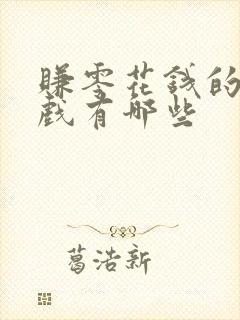 赚零花钱的
戏有哪些
葛浩新